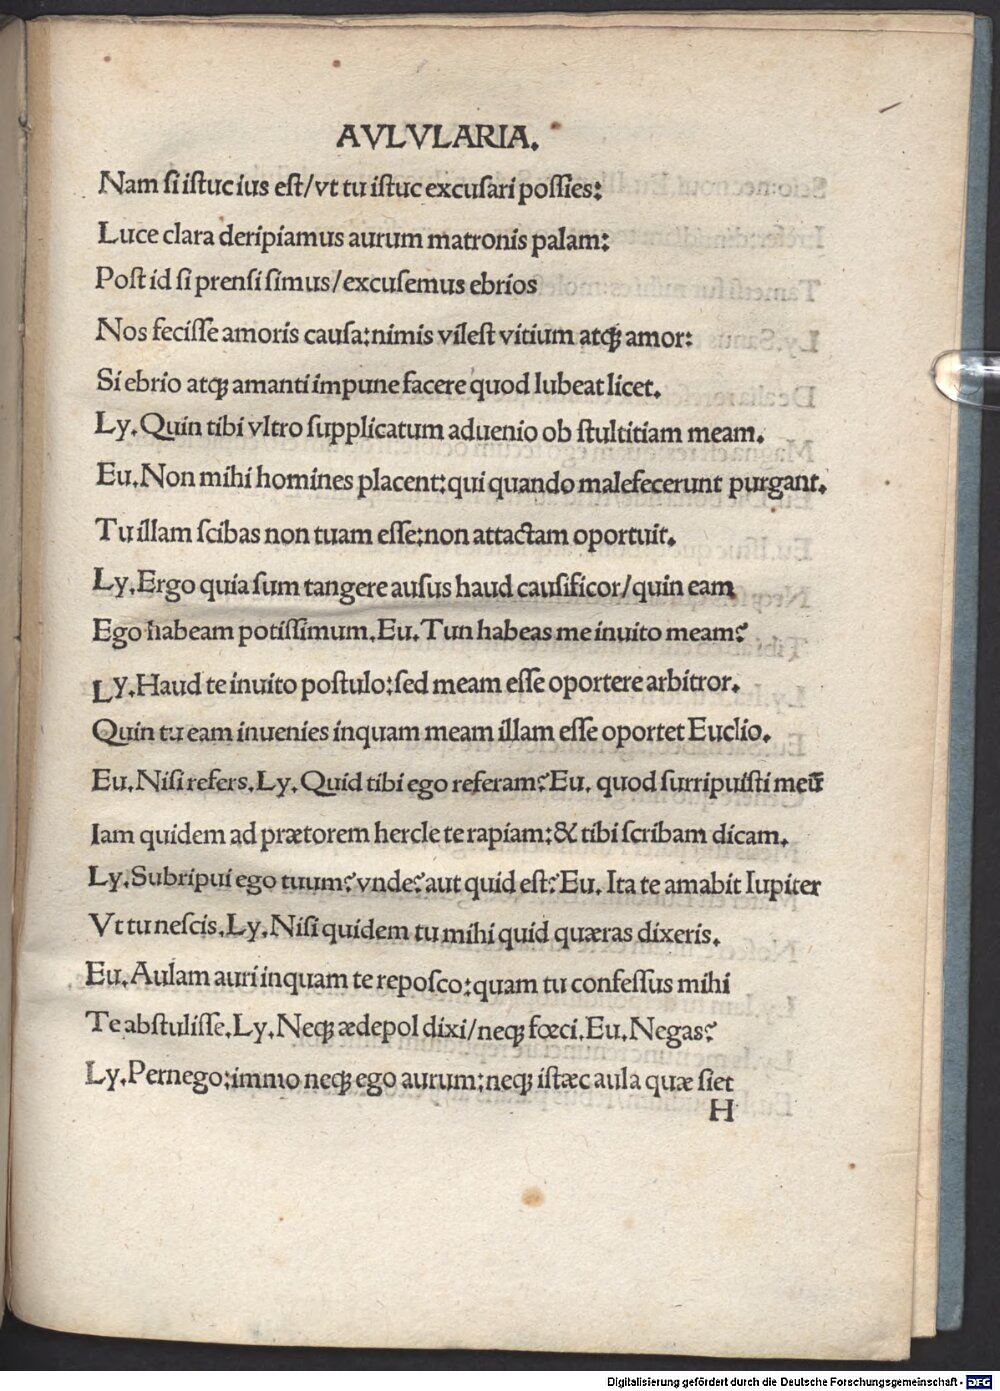 AVLVLARIA.
Nam ſi iſtuc ius eſt/vt tu iſtuc excuſari poſſies:
Luce clara deripiamus aurum matronis palam:
Poſt id ſi prenſi ſimus/excuſemus ebrios
Nos feciſſe amoris cauſa:nimis vileſt vitium atqꝫ amor:
Si ebrio atqꝫ amanti impune facere quod lubeat licet.
Ly.Quin tibi vltro ſupplicatum aduenio ob ſtultitiam meam.
Eu.Non mihi homines placent:qui quando malefecerunt purgant.
Tu illam ſcibas non tuam eſſe:non attactam oportuit.
Ly.Ergo quia ſum tangere auſus haud cauſificor/quin eam
Ego habeam potiſſimum.Eu.Tun habeas me inuito meam?
Ly.Haud te inuito poſtulo:ſed meam eſſe oportere arbitror.
Quin tu eam inuenies inquam meam illam eſſe oportet Euclio.
Eu.Niſi refers.Ly.Quid tibi ego referam?Eu. quod ſurripuiſti meū
Iam quidem ad prætorem hercle te rapiam:& tibi ſcribam dicam.
Ly.Subripui ego tuum?vnde?aut quid eſt?Eu. Ita te amabit Iupiter
Vt tu neſcis.Ly.Niſi quidem tu mihi quid quæras dixeris.
Eu.Aulam auri inquam te repoſco:quam tu confeſſus mihi
Te abſtuliſſe.Ly.Neqꝫ ædepol dixi/neqꝫ fœci.Eu.Negas?
Ly.Pernego:immo neqꝫ ego aurum:neqꝫ iſtæc aula quæ ſiet
H
Digitalisierung gefördert durch die Deutsche Forschungsgemeinschaft - DFG